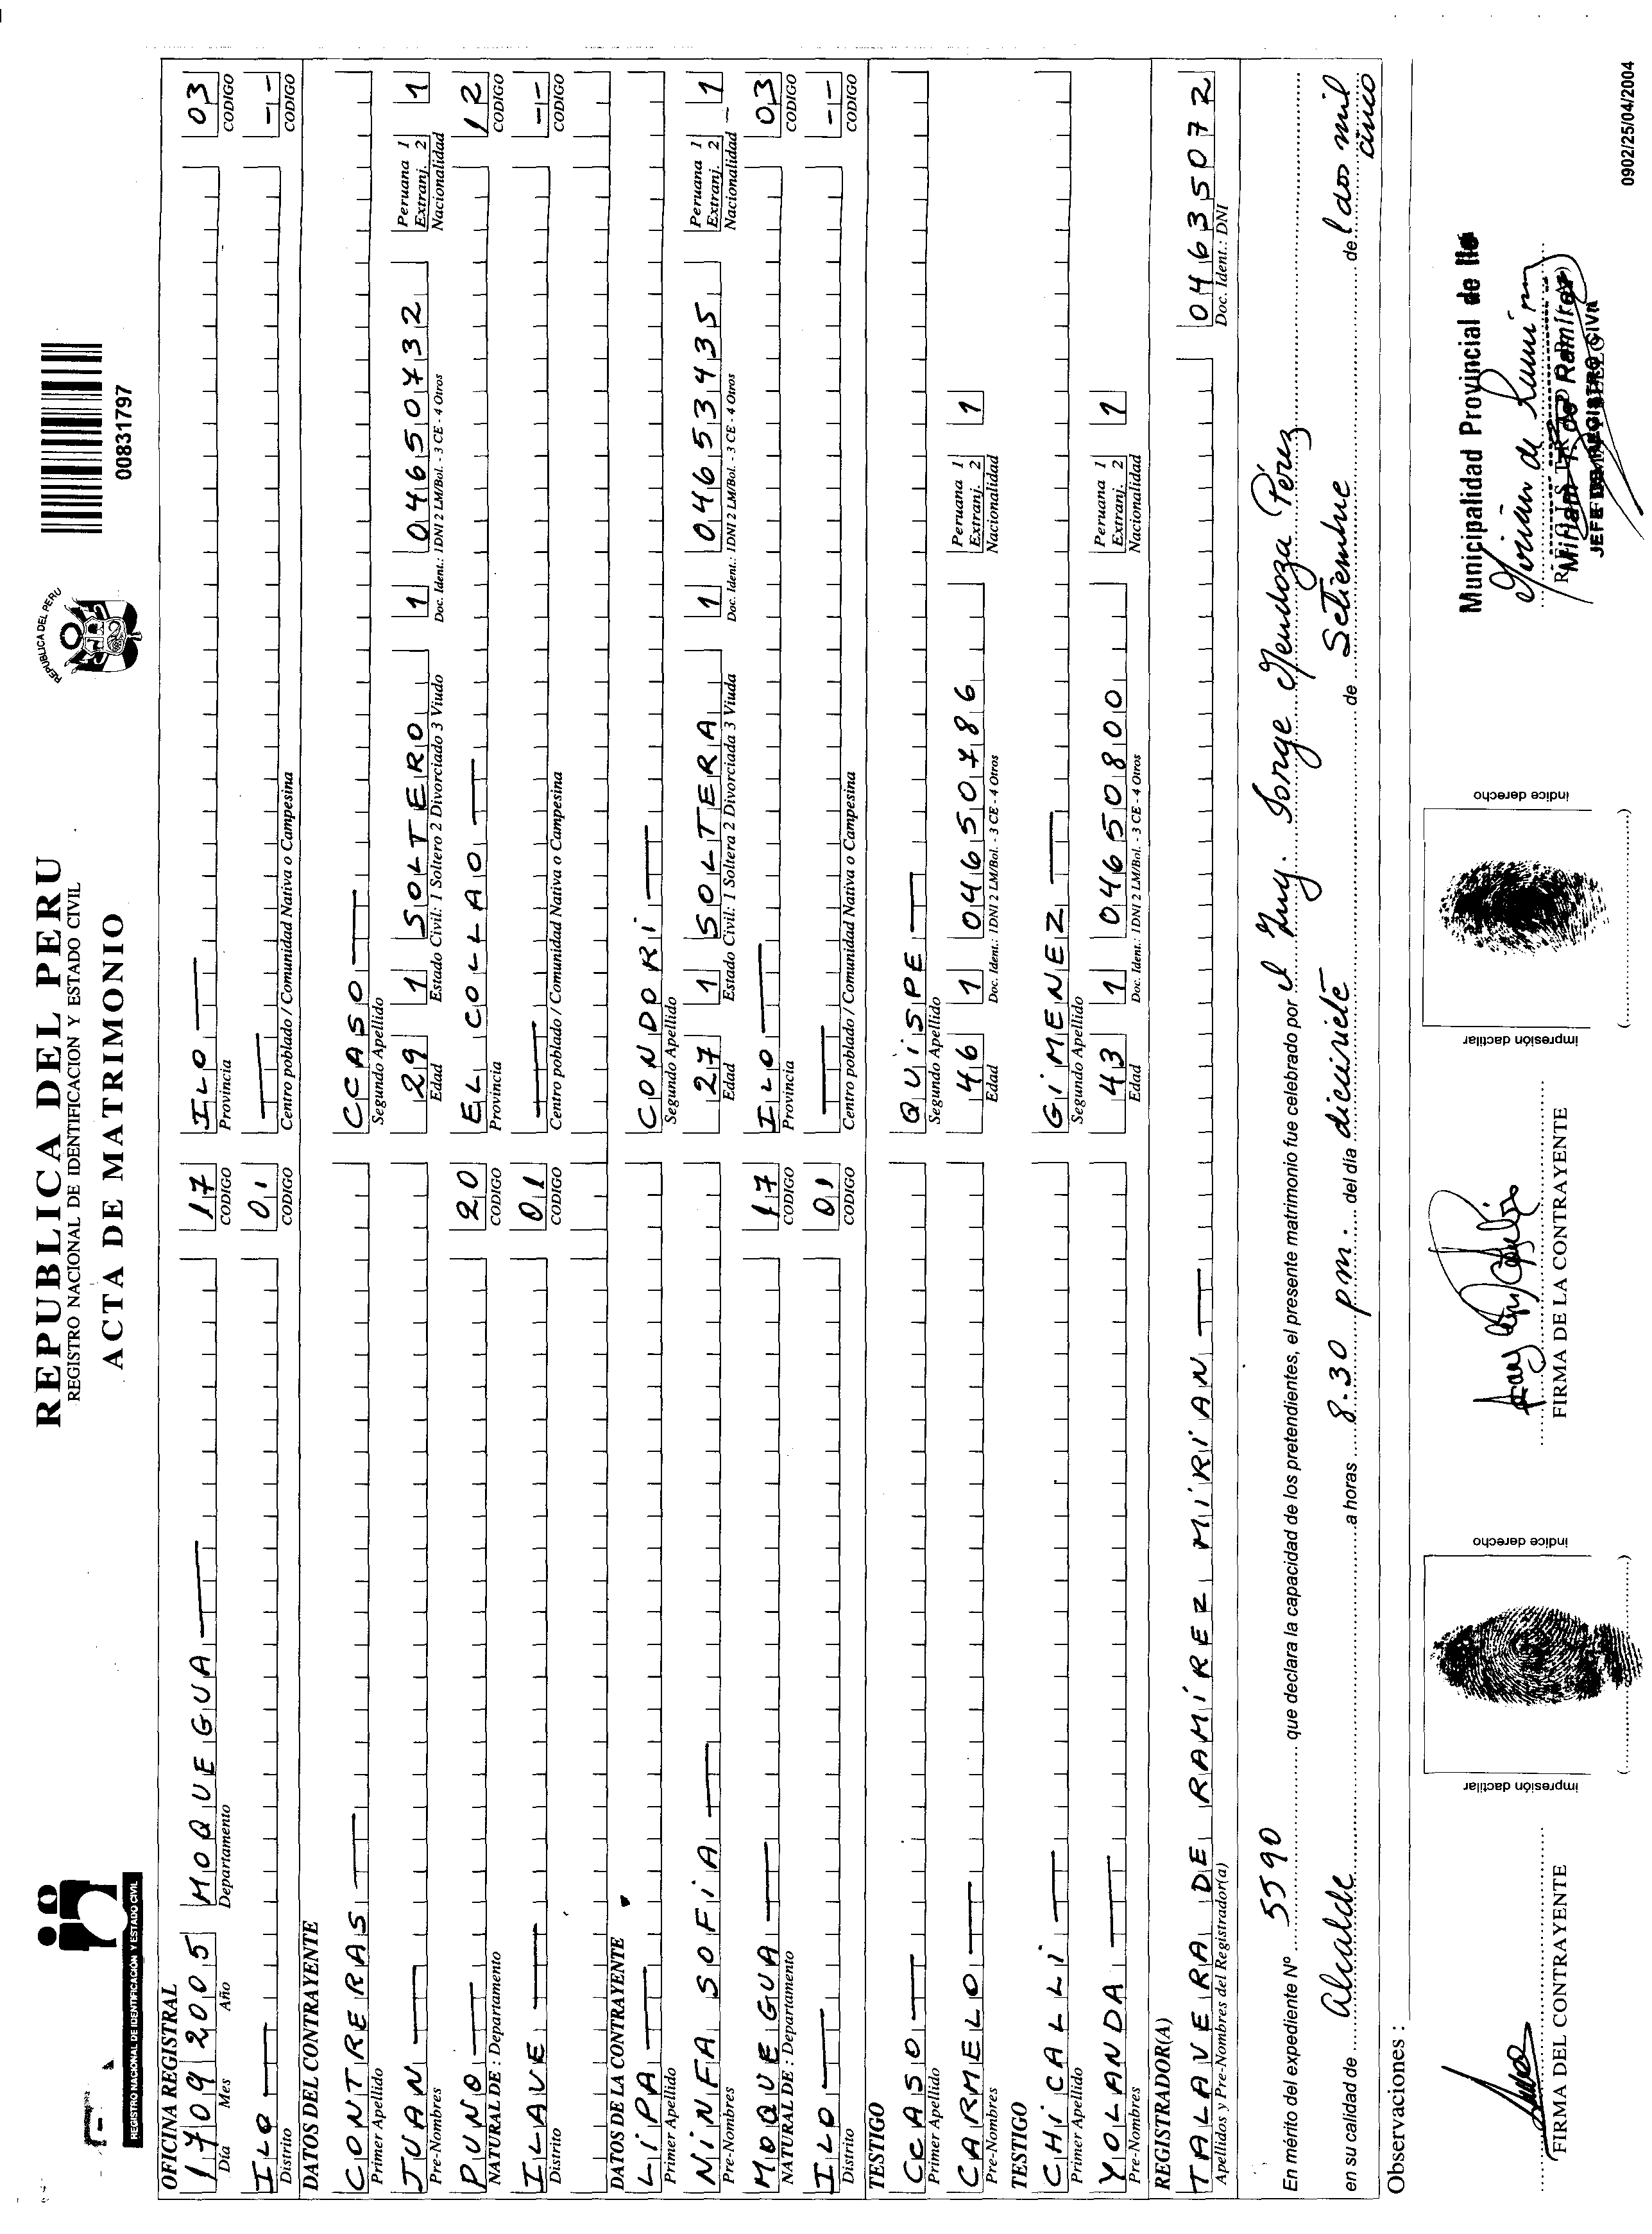 REGISTRO NACIONAL DE IDENTIFICACIÓN Y ESTADO CIVIL
REPUBLICA DEL PERU
REGISTRO NACIONAL DE IDENTIFICACION Y ESTADO CIVIL
ACTA DE MATRIMONIO
REPUBLICA DEL PERU
00831797
OFICINA REGISTRAL
17 09 2005 MOQUEGUA 17 ILO 03
Día Mes Año Departamento CODIGO Provincia CODIGO
ILO 01 --
Distrito CODIGO Centro poblado / Comunidad Nativa o Campesina CODIGO
DATOS DEL CONTRAYENTE
CONTRERAS CCASO
Primer Apellido Segundo Apellido
JUAN 29 1 SOLTERO 1 04650732 Peruana 1 Extranj. 2 1
Pre-Nombres Edad Estado Civil: 1 Soltero 2 Divorciado 3 Viudo Doc. Ident.: 1DNI 2 LM/Bol. - 3 CE - 4 Otros Nacionalidad
PUNO 20 EL COLLAO 12
NATURAL DE : Departamento CODIGO Provincia CODIGO
ILAVE 01 --
Distrito CODIGO Centro poblado / Comunidad Nativa o Campesina CODIGO
DATOS DE LA CONTRAYENTE
LIPA CONDORI
Primer Apellido Segundo Apellido
NINFA SOFIA 27 1 SOLTERA 1 04653435 Peruana 1 Extranj. 2 1
Pre-Nombres Edad Estado Civil: 1 Soltera 2 Divorciada 3 Viuda Doc. Ident.: 1DNI 2 LM/Bol. - 3 CE - 4 Otros Nacionalidad
MOQUEGUA 17 ILO 03
NATURAL DE : Departamento CODIGO Provincia CODIGO
ILO 01 --
Distrito CODIGO Centro poblado / Comunidad Nativa o Campesina CODIGO
TESTIGO
CCASO QUISPE
Primer Apellido Segundo Apellido
CARMELO 46 1 04650786 Peruana 1 Extranj. 2 1
Pre-Nombres Edad Doc. Ident.: 1DNI 2 LM/Bol. - 3 CE - 4 Otros Nacionalidad
TESTIGO
CHICALLI GIMENEZ
Primer Apellido Segundo Apellido
YOLANDA 43 1 04650800 Peruana 1 Extranj. 2 1
Pre-Nombres Edad Doc. Ident.: 1DNI 2 LM/Bol. - 3 CE - 4 Otros Nacionalidad
REGISTRADOR(A)
TALAVERA DE RAMIREZ MIRIAN 04635072
Apellidos y Pre-Nombres del Registrador(a) Doc. Ident.: DNI
En mérito del expediente Nº 5590 que declara la capacidad de los pretendientes, el presente matrimonio fue celebrado por el Ing. Jorge Mendoza Pérez
en su calidad de Alcalde a horas 8.30 p.m. del día diecisiete de Setiembre del dos mil cinco
Observaciones :
impresión dactilar
índice derecho
impresión dactilar
índice derecho
FIRMA DEL CONTRAYENTE
FIRMA DE LA CONTRAYENTE
Municipalidad Provincial de Ilo
Mirian T. de Ramírez
JEFE DE REGISTRO CIVIL
0902/25/04/2004